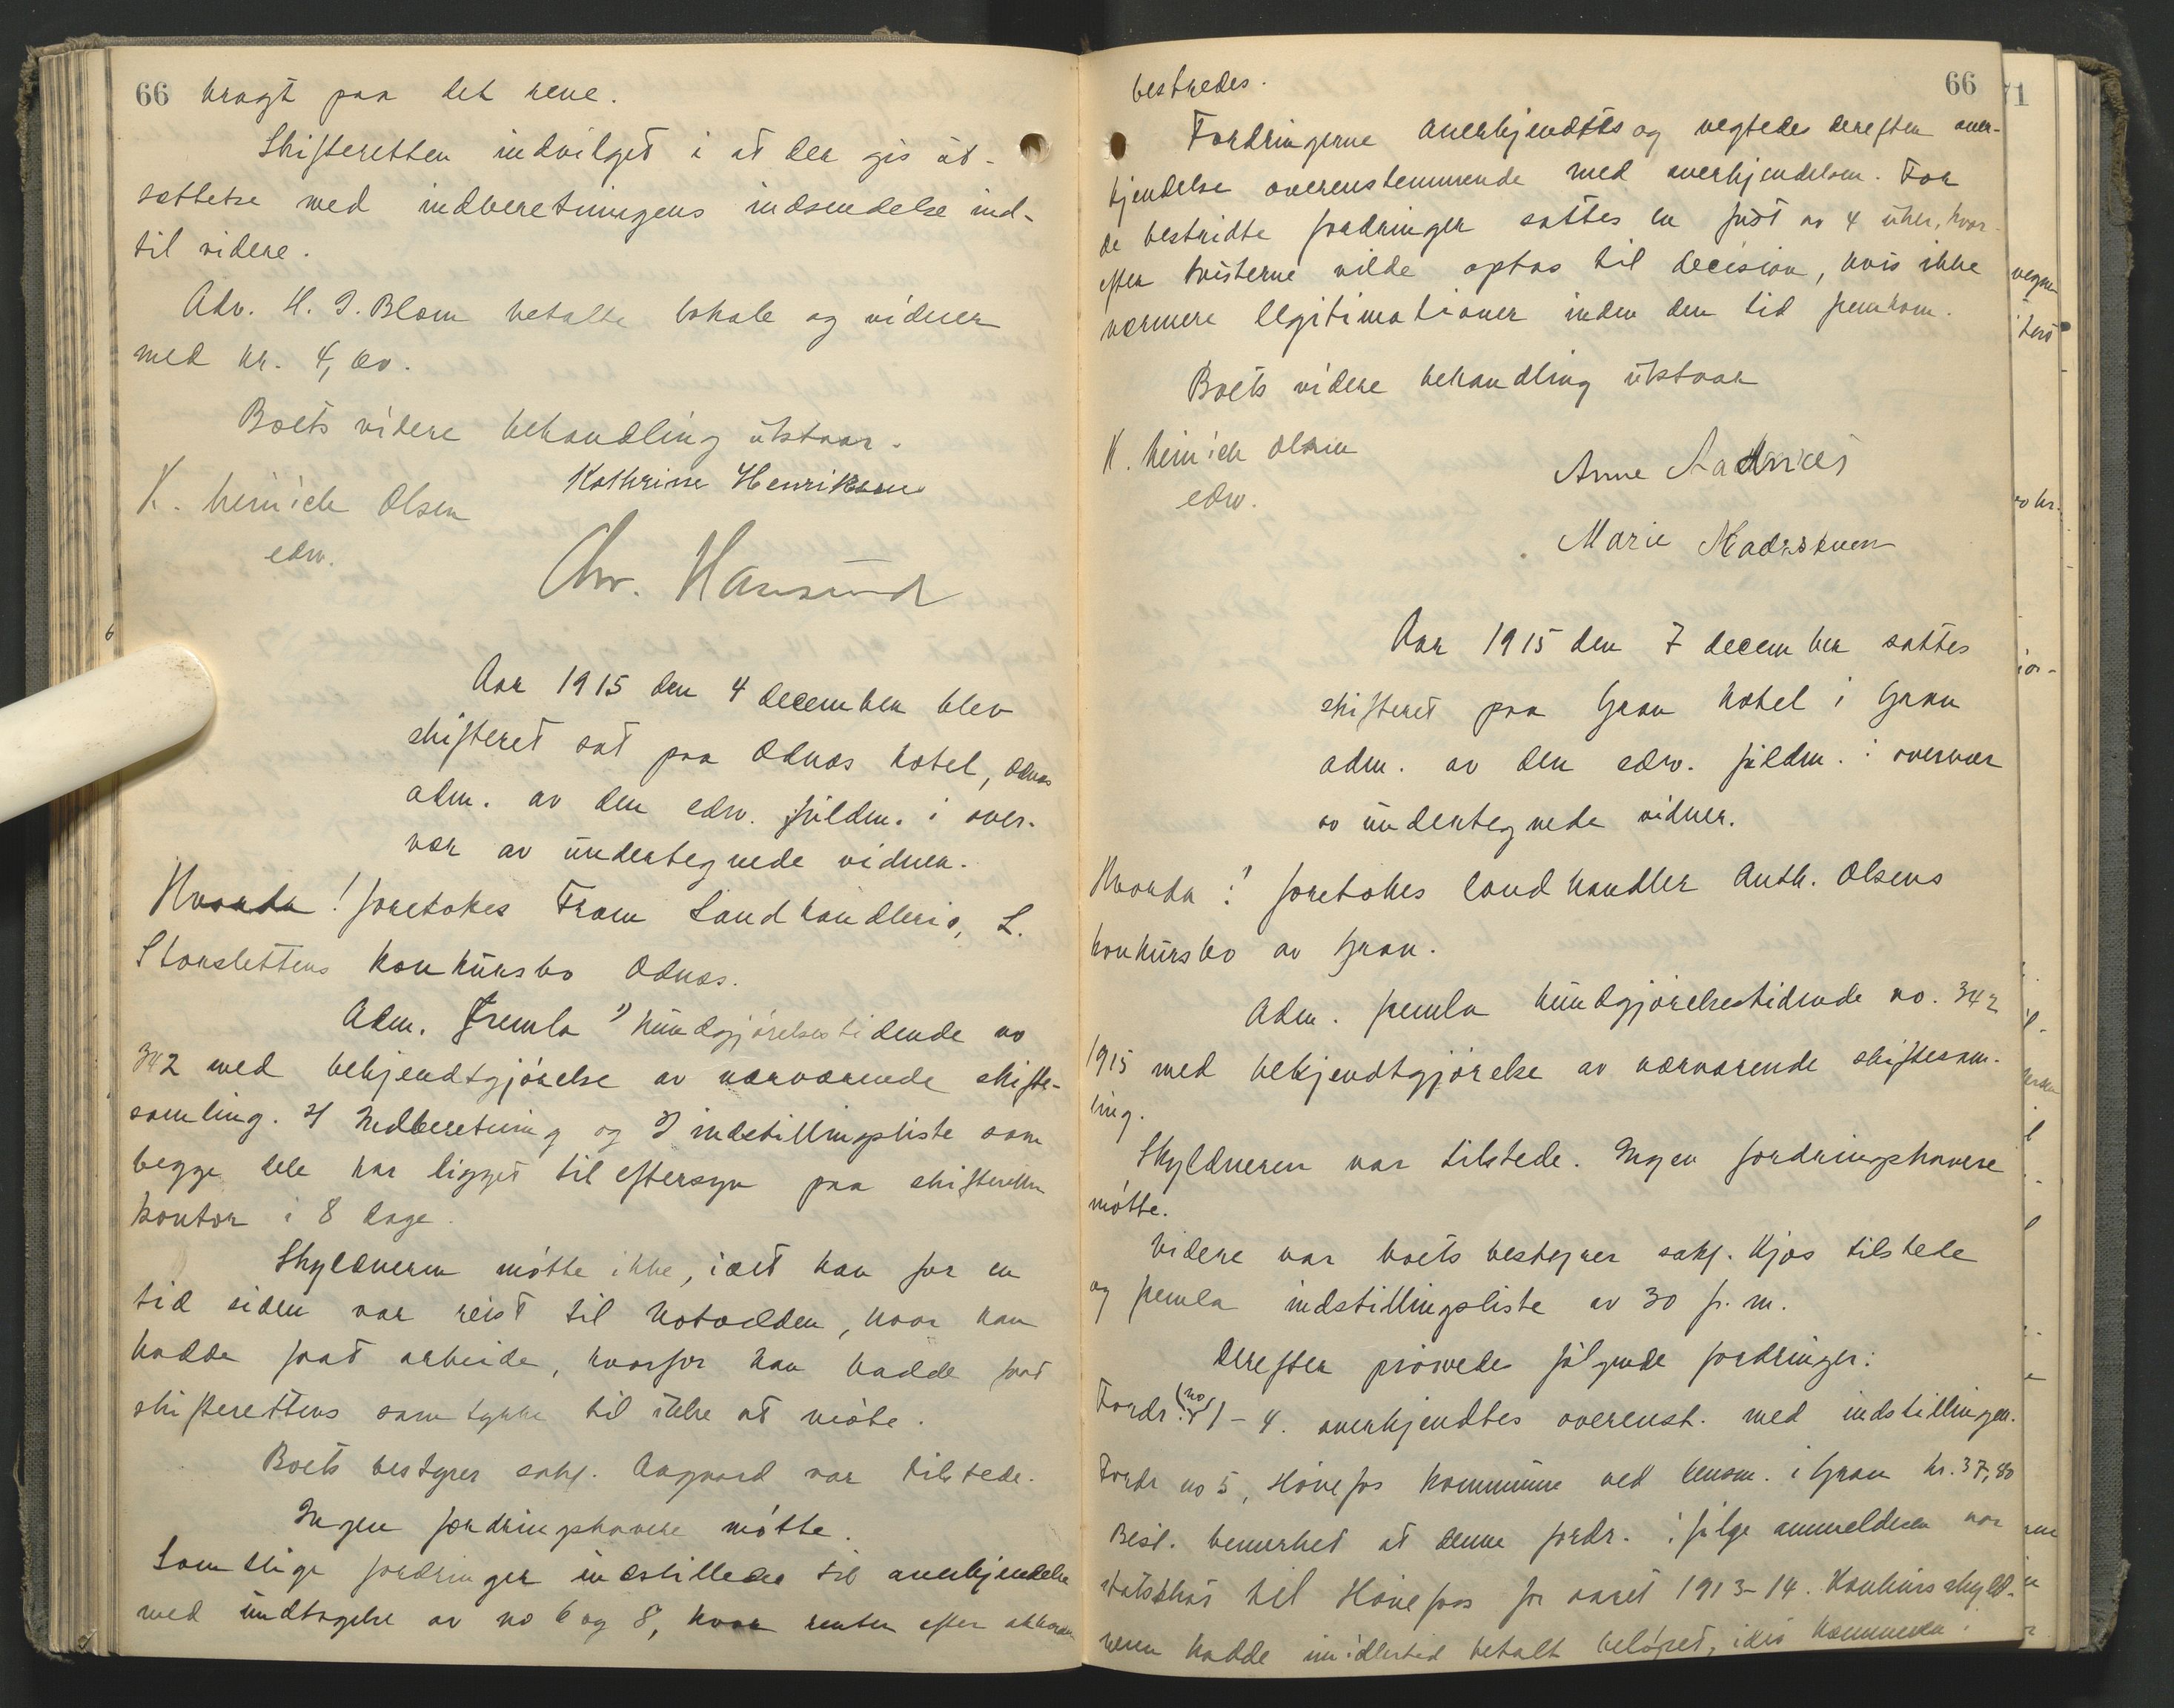 66 bragt paa det rene.
Skifteretten indvilget i at der gis ut-
sættelse med indberetningens indsendelse ind-
til videre.
Adv. H. J. Blom betalte lokale og vidner
med kr. 4,00.
Boets videre behandling utstaar.
K. Heinrich Olsen Kathrine Henriksen
edsv.
Chr. Hansund
Aar 1915 den 4 december blev
skifteret sat paa Odnæs hotel, Odnæs
adm. av den edsv. fuldm. i over-
vær av undertegnede vidner.
Hvorda! foretokes Fram Landhandleri,
L.
Storslettens konkursbo Odnæs.
Adm. fremla 1) kundgjørelsestidende no
342 med bekjendtgjørelse av nærværende skifte-
samling. 2) Indberetning og 3) indstillingsliste som
begge dele har ligget til eftersyn paa skifterettens
kontor i 8 dage.
Skyldneren møtte ikke, idet han for en
tid siden var reist til Notodden, hvor han
hadde faat arbeide, hvorfor han hadde faat
skifterettens samtykke til ikke at møte.
Boets bestyrer sakf. Aagaard var tilstede.
Ingen fordringshavere møtte.
Samtlige fordringer indstilledes til anerkjendelse
med undtagelse av no 6 og 8, hvor renter efter
66
bestredes.
Fordringerne anerkjendtes og negtedes derefter aner-
kjendelse overenstemmende med anerkjendelsen. For
de bestridte fordringer sattes en frist av 4 uker, hvor-
efter tvisterne vilde optas til decision, hvis ikke
nærmere legitimationer inden den tid fremkom.
Boets videre behandling utstaar
K. Heinrich Olsen
edsv.
Anne
Marie
Aar 1915 den 7 december sattes
skifteret paa Gran hotel i Gran
adm. av den edsv. fuldm. i overvær
av undertegnede vidner.
Hvorda: foretokes landhandler Anth. Olsens
konkursbo av Gran.
Adm. fremla kundgjørelsestidende no. 342
1915 med bekjendtgjørelse av nærværende skiftesam-
ling.
Skyldneren var tilstede. Ingen fordringshavere
møtte.
Videre var boets bestyrer sakf. Kjos tilstede
og fremla indstillingsliste av 30 f. m.
Derefter prøvedes følgende fordringer:
Fordr. (no) 1-4. anerkjendtes overenst. med indstillingen.
Fordr no 5, Hønefos kommune ved lensm. i Gran kr. 37,80
Best. bemerket at denne fordr. ifølge anmeldelsen var
statsskat til Hønefos for aaret 1913-14. Konkursskyld-
neren hadde imidlertid betalt beløpet, idet kommunen